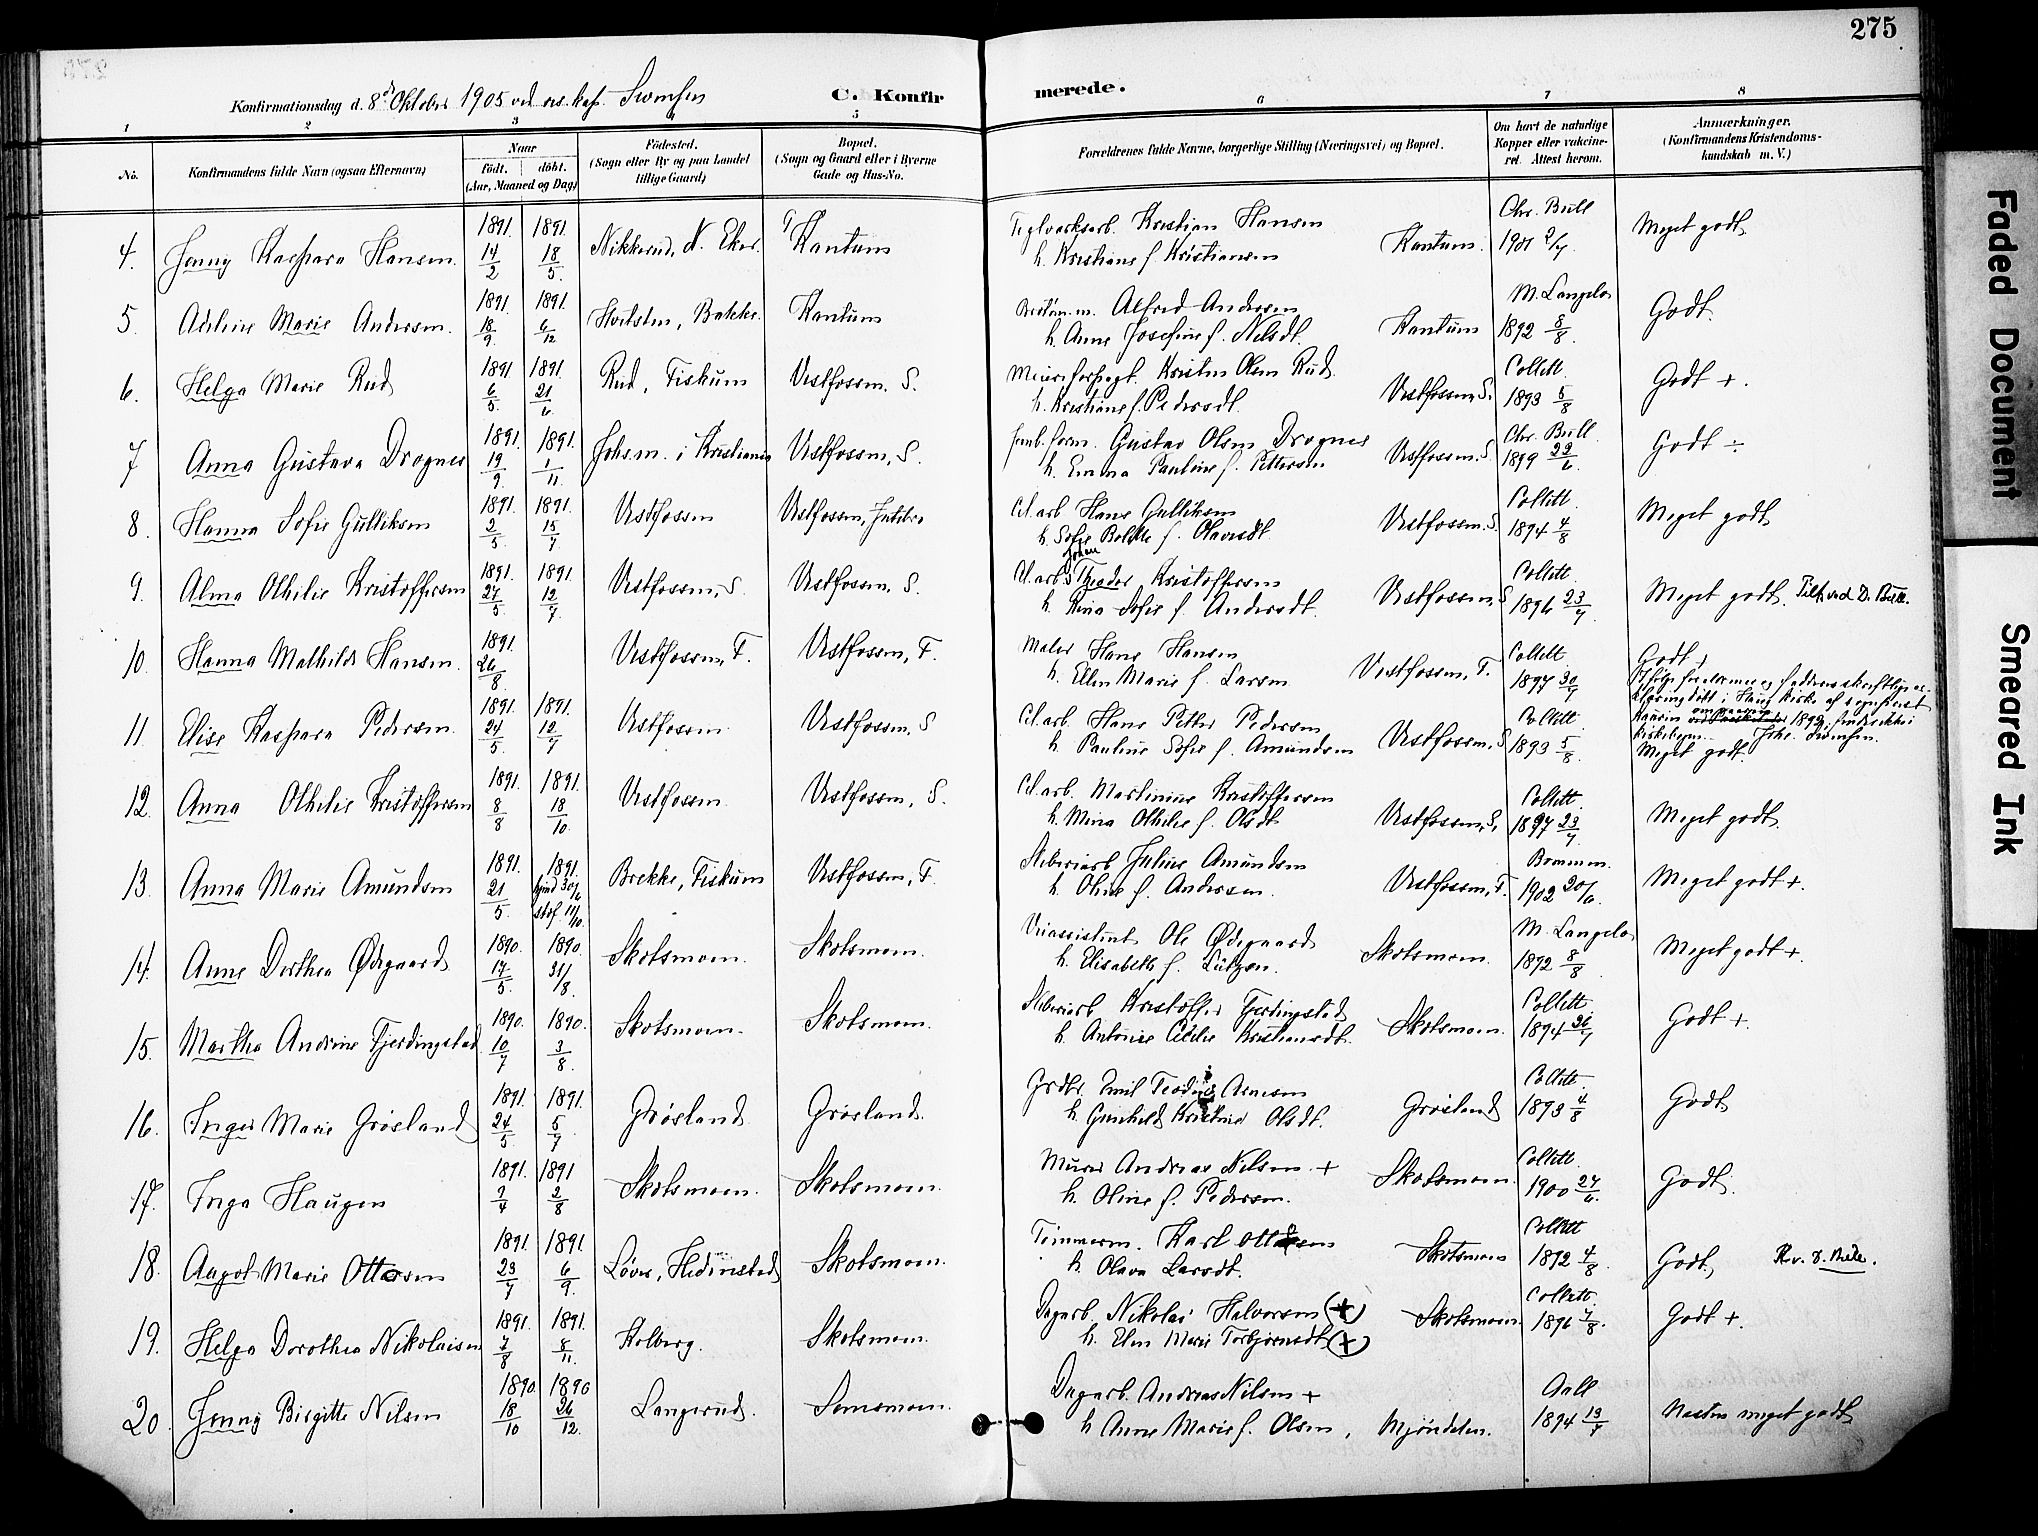 275
Konfirmationsdag d. 8de Oktober 1905 ved res. kap. Svensen
C. Konfirmerede.
1 2 3 4 5 6 7 8
No.
Konfirmandens fulde Navn (ogsaa Efternavn)
Naar
født. døbt.
(Aar, Maaned og Dag)
Fødested.
(Sogn eller By og paa Landet
tillige Gaard)
Bopæl.
(Sogn og Gaard eller i Byerne
Gade og Hus-No.
Forældrenes fulde Navne, borgerlige Stilling (Næringsvei) og Bopæl.
Om havt de naturlige
Kopper eller vakcine-
ret. Attest herom.
Anmærkninger.
(Konfirmandens Kristendoms-
kundskab m. V.)
4. Jenny Kaspara Hansen. 1891. 14/2 1891. 18/5. Nikkerud, N. Eker. Kantum Teglværksarb. Kristian Hansen Kantum. Chr. Bull 1901 2/4. Meget godt
h. Kristiane f. Kristiansen
5. Adeline Marie Andersen. 1891. 18/9. 1891. 6/12 Hvitsten, Bakke. Kantum Alfred Andersen Kantum M. Langelo 1892 8/8. Godt.
h. Anne Josefine f. Nilsdt.
6. Helga Marie Rud 1891 6/5. 1891. 21/6 Rud, Fiskum Vestfossen. S. Meieriforpagt. Kristen Olsen Rud Vestfossen, S. Collett. 1893 5/8 Godt +.
h. Kristiane f. Pedersdt.
7 Anna Gustava Drognes 1891. 19/9. 1891. 1/11. Johs. m. i Kristiania Vestfossen, S. Gustav Olsen Drognes Vestfossen. S Chr. Bull. 1899 23/6. Godt ÷
h. Emma Pauline f. Pettersen
8. Hanna Sofie Gulliksen 1891. 2/5. 1891. 15/7 Vestfossen Vestfossen, Cel. arb Hans Gulliksen Vestfossen. S. Collett 1894 4/8 Meget godt
h. Sofie Bolette f. Olavesdt.
9. Alma Othilie Kristoffersen 1891. 27/5. 1891. 12/7. Vestfossen, S. Vestfossen. S. Cel. arb Johan Theodor Kristoffersen Vestfossen, S Collett. 1896 23/7. Meget godt. Tilf. ved D. Bull.
h. Lina Sofie f. Andersdt.
10. Hanna Mathilde Hansen. 1891. 26/8. Vestfossen, F. Vestfossen, F. Maler Hans Hansen Vestfossen, F. Collett 1897 30/7 Godt +
h. Ellen Marie f. Larsen
Ifølge forældrenes og faddernes skriftlige er-
klæring døbt i Haug kirke af sogneprest
1892, indrekke i
kirkebogen. Johs. Svensen.
11. Elise Kaspara Pedersen. 1891. 24/5. 1891. 12/7 Vestfossen. Vestfossen, S Cel. arb. Hans Petter Pedersen Vestfossen, S Collett. 1893 5/8. Meget godt.
h. Pauline Sofie f. Amundsen
12. Anna Othilie Kristoffersen 1891. 8/8 1891. 18/10. Vestfossen. Vestfossen, S. Cel. arb. Martinius Kristoffersen Vestfossen, S. Collett. 1897 23/7 Meget godt.
h. Mina Othilie f. Olsdt
13. Anna Marie Amundsen 1891. 21/5. 1891. hjmd 30/6 stdf. 11/10. Brekke, Fiskum Vestfossen, F. Sliberiarb Julius Amundsen Vestfossen, F. Brommen. 1902 20/6. Meget godt +.
h. Oline f. Andersen.
14. Anne Dorthea Ødegaard 1890. 17/5. 1890. 31/8. Skotsmoen. Skotsmoen. Veiassistent Ole Ødegaard Skotsmoen. M. Langelo 1892 8/8 Meget godt +
h. Elisabeth f. Lützen.
15. Martha Andrine Fjerdingstad 1890. 10/7 1890. 3/8 Skotsmoen. Skotsmoen. Sliberiarb Kristoffer Fjerdingstad Skotsmoen. Collett. 1894 Godt +.
h. Antonie Cecilie Kristiansdt.
16. Inger Marie Grøsland 1891. 24/5. 1891. 5/7 Grøsland Grøsland. Grdbr. Emil Arnesen Grøsland Collett. 1893 4/8 Godt
h. Gunhild Kristine Olsdt.
17. Inga Haugen 1891. 7/4 1891 2/8 Skotsmoen. Skotsmoen. Murer Andreas Nilsen + Skotsmoen Collett. 1900 27/6. Godt.
h. Oline f. Pedersen.
18. Aagot Marie Ottosen 1891. 23/7 1891. 6/9. Løver, Hedenstad Skotsmoen. Tømmerm. Karl Ottosen Skotsmoen Collett 1892 4/8. Godt,
h. Olava Larsdt.
19. Helga Dorothea Nikolaisen 1891. 7/8 1891. 8/11. Kolberg. Skotsmoen. Dagarb. Nikolai Halvorsen (+) Skotsmoen. Collett. 1896 7/8. Godt +.
h. Elen Marie Torbjørnsdt (+)
20. Jenny Birgitte Nilsen 1890. 18/10 1890 26/12. Langerud. Semsmoen. Dagarb. Andreas Nilsen + Mjøndalen. Aall 1894 13/7 Næsten meget godt
h Anne Marie f. Olsen,
Faded Document
Smeared Ink